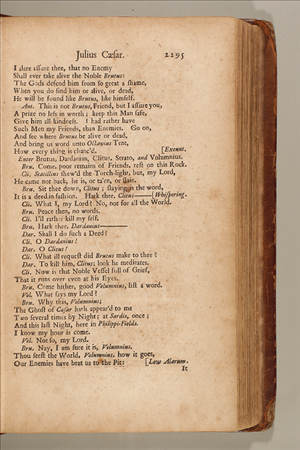 Julius Cæsar. 2295
I dare assure thee, that no Enemy
Shall ever take alive the Noble Brutus:
The Gods defend him from so great a shame,
When you do find him or alive, or dead,
He will be found like Brutus, like himself.
Ant. This is not Brutus, Friend, but I assure you,
A prize no less in worth; keep this Man safe,
Give him all kindness. I had rather have
Such Men my Friends, than Enemies. Go on,
And see where Brutus be alive or dead,
And bring us word unto Octavius Tent,
How every thing is chanc'd. [Exeunt.
Enter Brutus, Dardanius, Clitus, Strato, and Volumnius.
Bru. Come, poor remains of Friends, rest on this Rock.
Cli. Statilius shew'd the Torch-light, but, my Lord,
He came not back, he is, or ta'en, or slain.
Bru. Sit thee down, Clitus; slaying is the word,
It is a deed in fashion. Hark thee, Clitus—[Whispering.
Cli. What I, my Lord? No, not for all the World.
Bru. Peace then, no words.
Cli. I'll rather kill my self.
Bru. Hark thee, Dardanius—
Dar. Shall I do such a Deed?
Cli. O Dardanius!
Dar. O Clitus!
Cli. What ill request did Brutus make to thee?
Dar. To kill him, Clitus; look he meditates.
Cli. Now is that Noble Vessel full of Grief,
That it runs over even at his Eyes.
Bru. Come hither, good Volumnius, list a word.
Vol. What says my Lord?
Bru. Why this, Volumnius;
The Ghost of Cæsar hath appear'd to me
Two several times by Night; at Sardis, once;
And this last Night, here in Philippi-Fields.
I know my hour is come.
Vol. Not so, my Lord.
Bru. Nay, I am sure it is, Volumnius.
Thou seest the World, Volumnius, how it goes,
Our Enemies have beat us to the Pit: [Low Alarum.
It